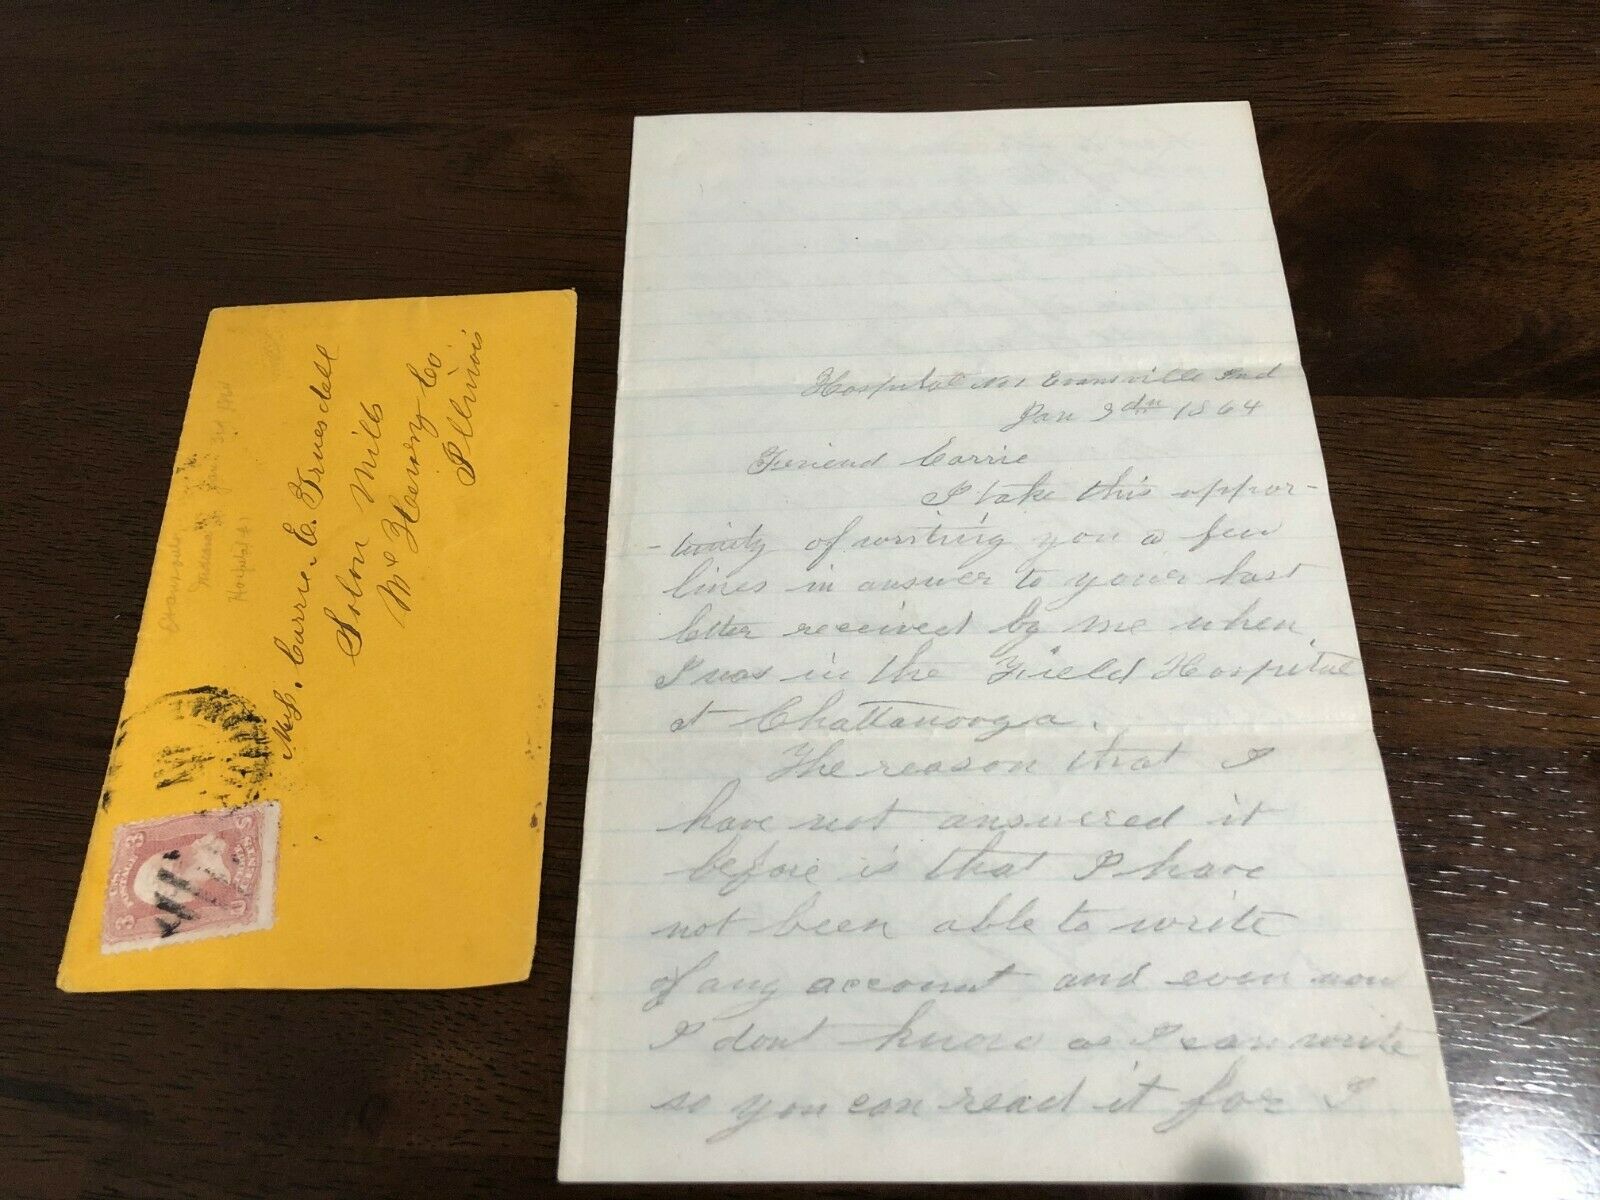 Miss. Carrie. E. Truesdell
Solon Mills
Mc Henery Co
Illinois
Evansville
Indiana
Jan. 3d
Hospital #1
3 3
Hospital No 1 Evansville Ind
Jan 3dn 1864
Friend Carrie
I take this oppor-
-tunity of writing you a few
lines in answer to your last
letter received by me when
I was in the Field Hospital
at Chattanooga.
The reason that I
have not answered it
before is that I have
not been able to write
of any account and even now
I dont know as I can write
so you can read it for I